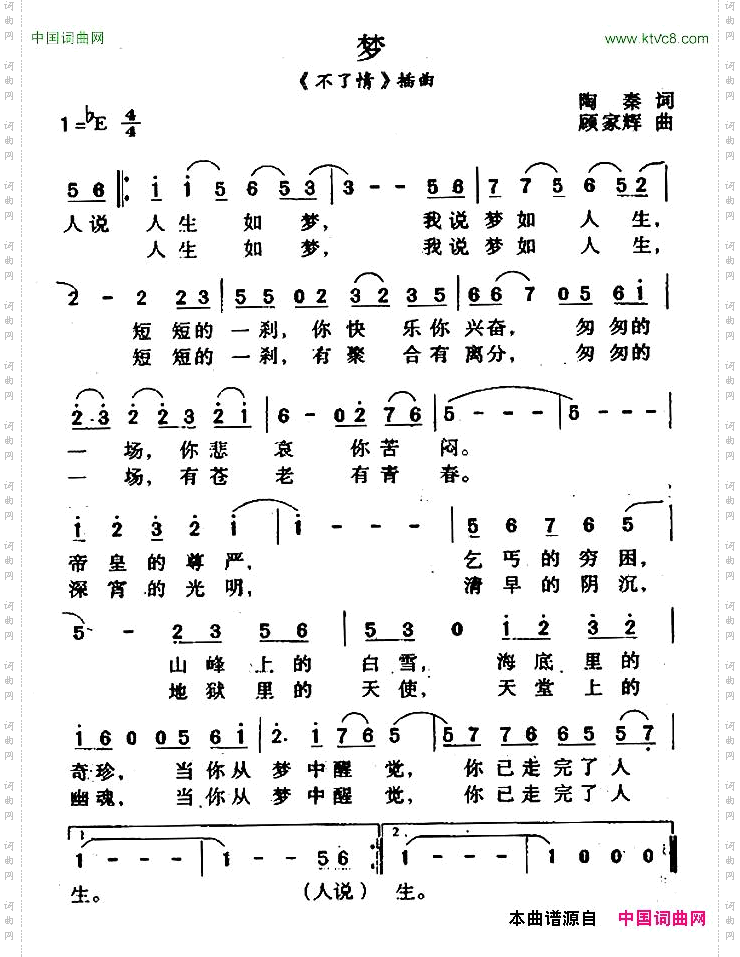 中国词曲网
www.ktvc8.com
梦
《不了情》插曲
陶秦词
1=♭E 4/4
顾家辉 曲
5 6 1 1 5 6 5 3 3 - - 5 6 7 7 5 6 5 2
人说 人生 如 梦， 我说梦如 人 生，
人生 如 梦， 我说梦如 人 生，
2 - 2 2 3 5 5 0 2 3 2 3 5 6 6 7 0 5 6 1
短 短的 一刹，你 快 乐你 兴奋， 匆匆的
短 短的 一刹，有 聚 合有 离分， 匆匆的
2· 3 2 2 3 2 1 6 - 0 2 7 6 5 - - - 5 - -
一 场，你悲 哀 你苦 闷。
一 场，有苍 老 有青 春。
1 2 3 2 1 1 - - - 5 6 7 6 5
帝皇的尊严， 乞丐的穷困，
深宵的光明， 清早的阴沉，
5 - 2 3 5 6 5 3 0 1 2 3 2
山峰上的 白雪， 海底里的
地狱里的 天使， 天堂上的
1 6 0 0 5 6 1 2· 1 7 6 5 5 7 7 6 6 5 5 7
奇珍， 当你从 梦中醒 觉， 你已走完了人
幽魂， 当你从 梦中醒 觉， 你已走完了人
1. 2.
1 - - - 1 - - 5 6 1 - - - 1 0 0 0
生。 （人说） 生。
本曲谱源自 中国词曲网